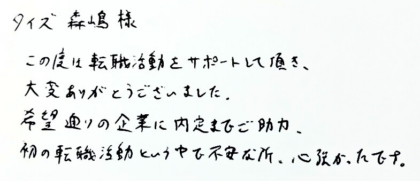 タイズ 森嶋 様
この度は転職活動をサポートして頂き、
大変ありがとうございました。
希望通りの企業に内定までご助力、
初の転職活動という中で不安な所、心強かったです。